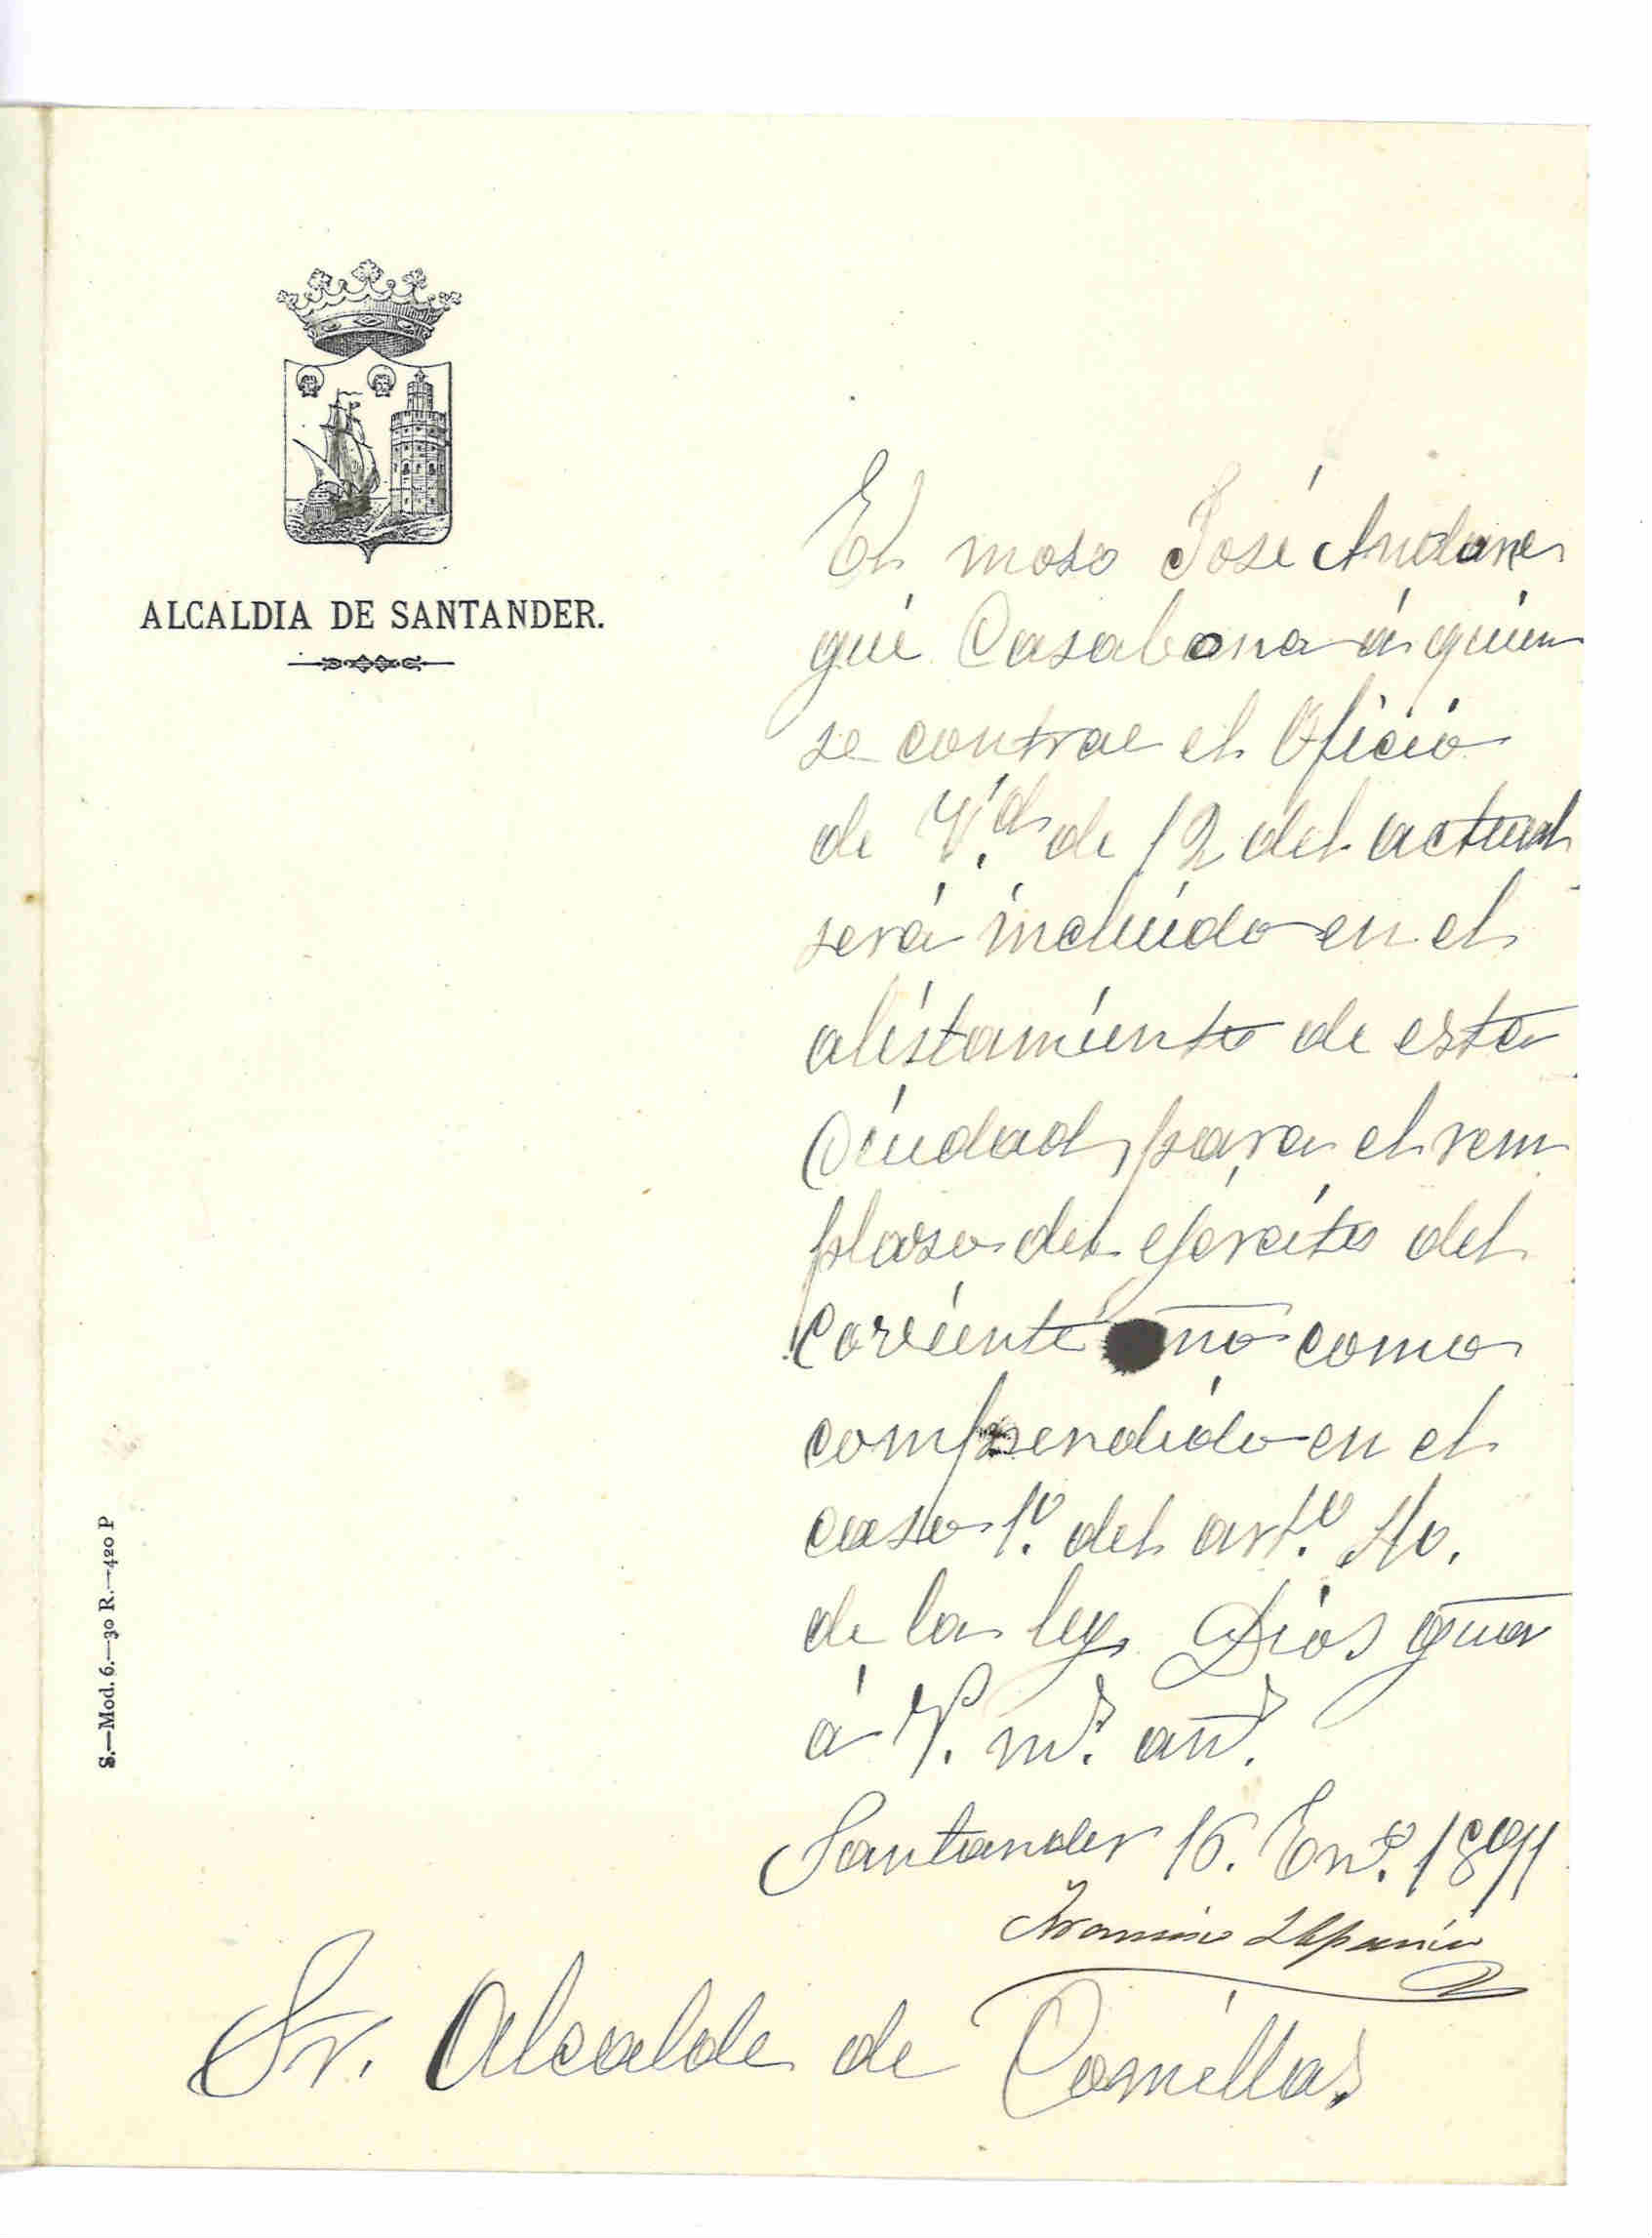 ALCALDIA DE SANTANDER.
El moso José Andare
gui Casabona á quien
se contrae el Oficio
de V.d de 12 del actual
será incluido en el
alistamiento de esta
Ciudad, para el rem
plaso del ejército del
corriente año como
comprendido en el
caso 1.º del art.º 40.
de la ley. Dios gũa
á V. m.s añ.s
Santander 16. En.º 1891
Sr. Alcalde de Comillas
S.—Mod. 6.—30 R.—420 P